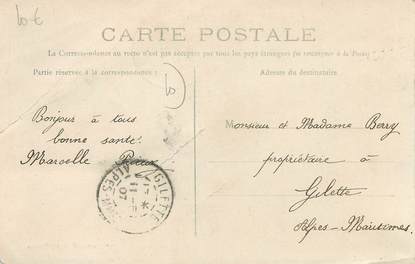 10€
CARTE POSTALE
La Correspondance au recto n'est pas acceptée par tous les pays étrangers (se renseigner à la Poste)
Partie réservée à la correspondance
Adresse du destinataire
10
Bonjour à tous
bonne santé
Marcelle
Monsieur et Madame Berry
propriétaire à
Gilette
Alpes-Maritimes.
GILETTE
11
07